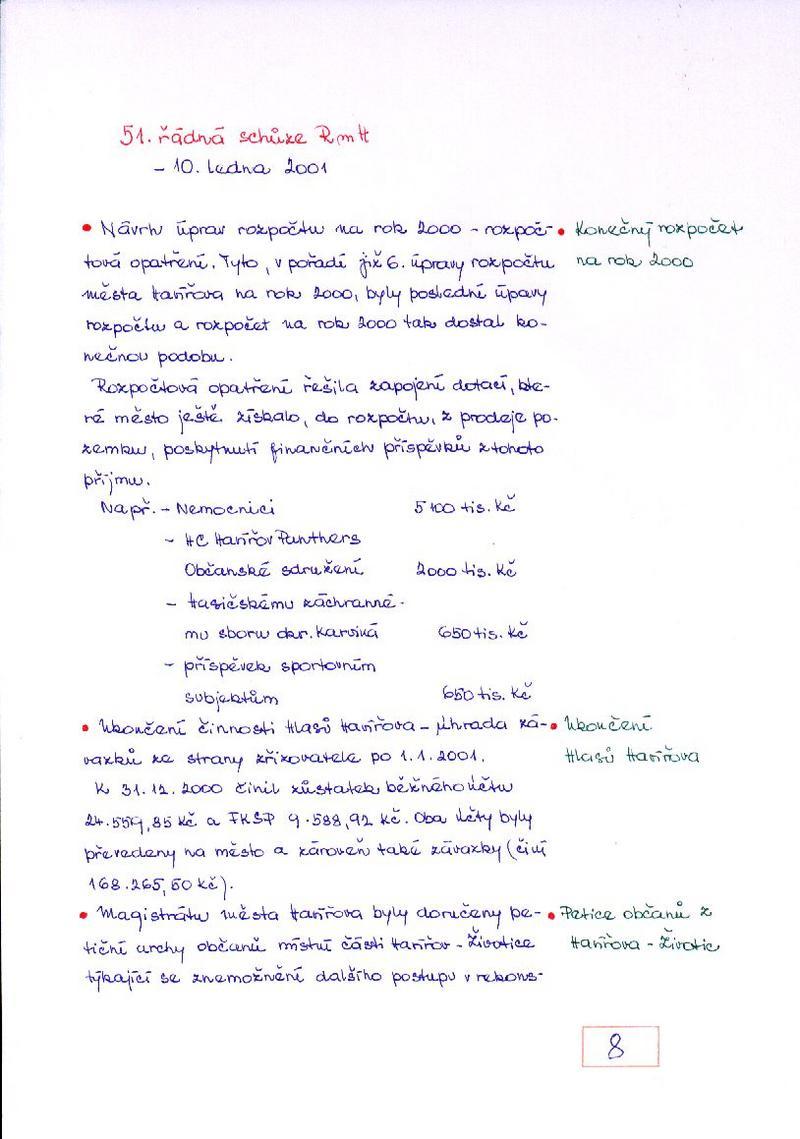 51. řádná schůze RmH
- 10. ledna 2001
• Návrh úprav rozpočtu na rok 2000 - rozpoč-
tová opatření. Tyto, v pořadí již 6. úpravy rozpočtu
města Havířova na rok 2000, byly poslední úpavy
rozpočtu a rozpočet na rok 2000 tak dostal ko-
nečnou podobu.
• Konečný rozpočet
na rok 2000
Rozpočtová opatření řešila zapojení dotací, kte-
ré město ještě získalo, do rozpočtu, z prodeje po-
zemku, poskytnutí finančních příspěvků z tohoto
příjmu.
Např. - Nemocnici 5 100 tis. Kč
- HC Havířov Panthers
Občanské sdružení 2000 tis. Kč
- Hasičskému záchranné-
mu sboru okr. Karviná 650 tis. Kč
- příspěvek sportovním
subjektům 650 tis. Kč
• Ukončení činnosti Hlasů Havířova - úhrada zá-
vazků ze strany zřizovatele po 1.1.2001.
• Ukončení
Hlasů Havířova
K 31.12. 2000 činil zůstatek běžného účtu
24.559,85 Kč a FKSP 9.588,92 Kč. Oba účty byly
převedeny na město a zároveň také závazky (činí
168.265,50 Kč).
• Magistrátu města Havířova byly doručeny pe-
tiční archy občanů místní části Havířov - Životice
týkající se znemožnění dalšího postupu v rekons-
• Petice občanů z
Havířova - Životic
8